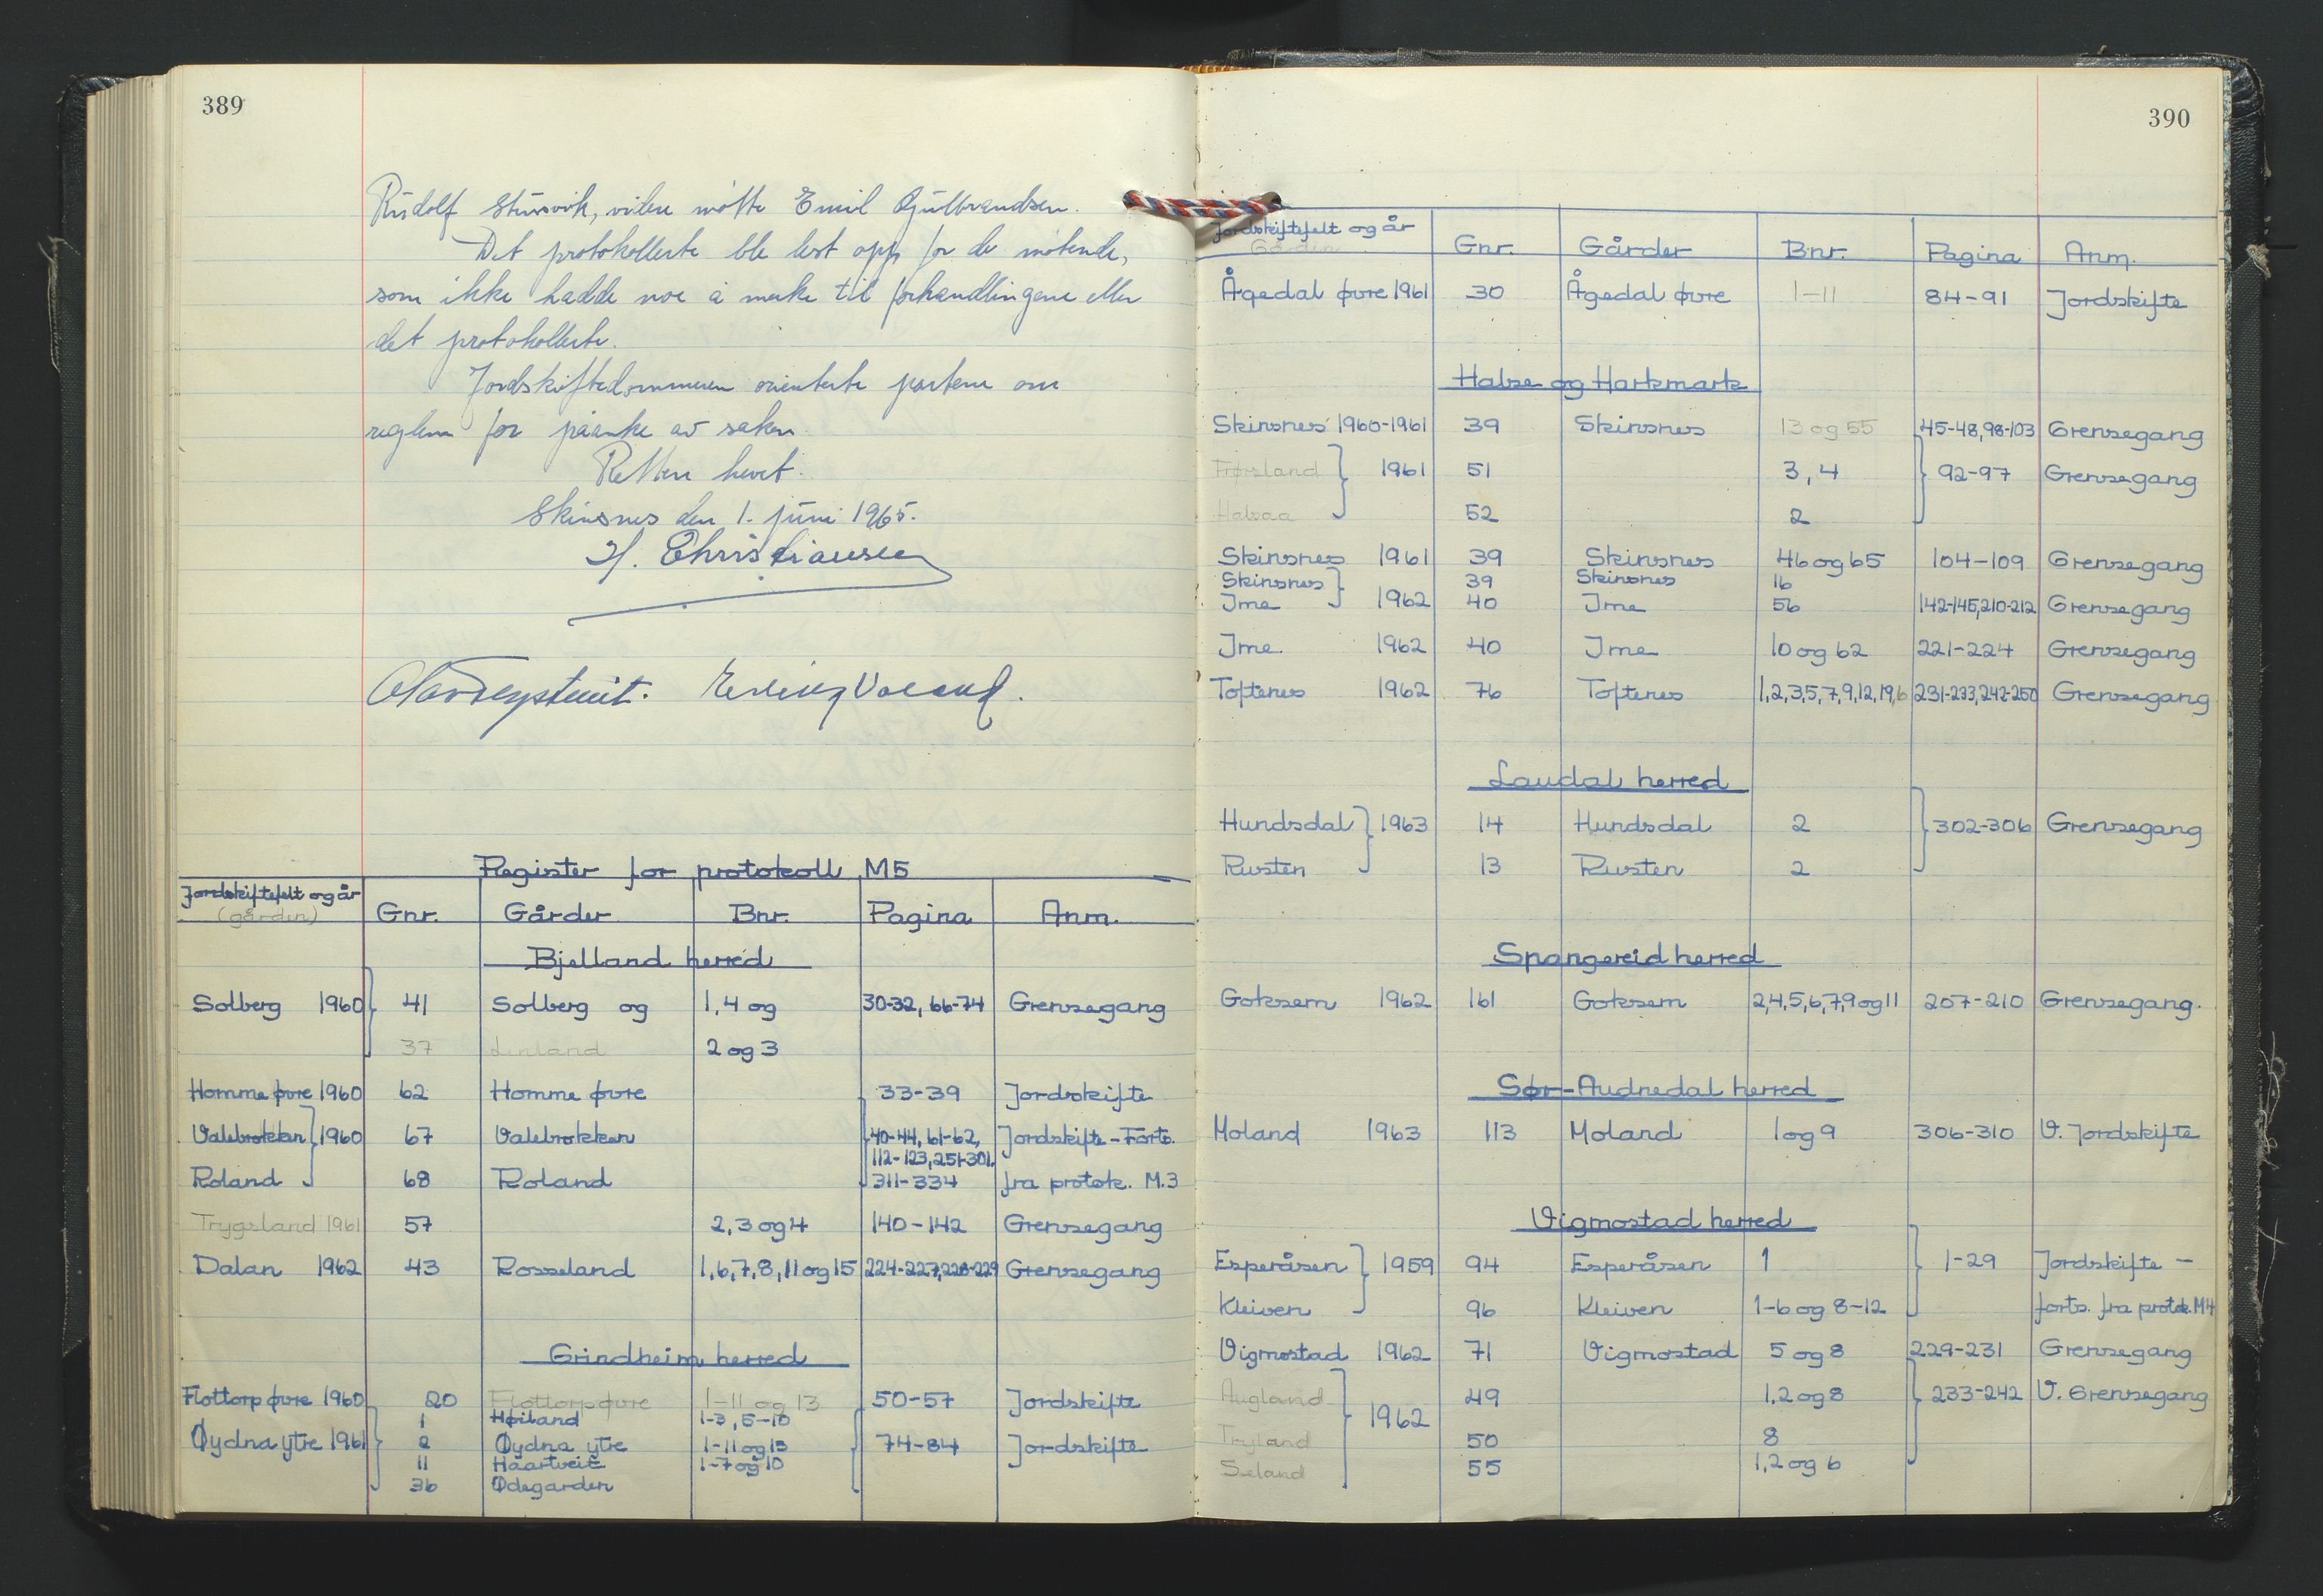 389
Rudolf Stusvik, videre møtte Emil Gulbrandsen.
Det protokollerte ble lest opp for de møtende,
som ikke hadde noe å merke til forhandlingene eller
det protokollerte.
Jordskiftedommeren orienterte partene om
reglene for påanke av saken.
Retten hevet.
Skinsnes den 1. juni 1965.
H. Christiansen
Register for protokoll M5
Jordskiftefelt og år (gården) Gnr. Gårder Bnr. Pagina Anm.
Bjelland herred
Solberg 1960 41 Solberg og 1,4 og 30-32, 66-74 Grensegang
37 Linland 2 og 3
Homme øvre 1960 62 Homme øvre 33-39 Jordskifte
Valebrokken 1960 67 Valebrokken 40-44, 61-62, Jordskifte - Forts.
112-123, 251-301,
Roland 68 Roland 311-334 fra protok. M.3
Trygsland 1961 57 2, 3 og 4 140-142 Grensegang
Dalan 1962 43 Rosseland 1,6,7,8,11 og 15 224-227, 228-229 Grensegang
Grindheim herred
Flottorp øvre 1960 20 Flottorp øvre 1-11 og 13 50-57 Jordskifte
1 Høiland 1-3, 5-10
Øydna ytre 1961 2 Øydna ytre 1-11 og 13 74-84 Jordskifte
11 Haartveit 1-7 og 10
36 Ødegarden
390
Jordskiftefelt og år Gården Gnr. Gårder Bnr. Pagina Anm.
Ågedal øvre 1961 30 Ågedal øvre 1-11 84-91 Jordskifte
Halse og Harkmark
Skinsnes 1960-1961 39 Skinsnes 13 og 55 45-48, 98-103 Grensegang
Frøsland 1961 51 3, 4 92-97 Grensegang
Halsaa 52 2
Skinsnes 1961 39 Skinsnes 46 og 65 104-109 Grensegang
Skinsnes 39 Skinsnes 16
Ime 1962 40 Ime 56 142-145, 210-212 Grensegang
Ime 1962 40 Ime 10 og 62 221-224 Grensegang
Toftenes 1962 76 Toftenes 1,2,3,5,7,9,12,19,6 231-233, 242-250 Grensegang
Laudal herred
Hundsdal 1963 14 Hundsdal 2 302-306 Grensegang
Rusten 13 Rusten 2
Spangereid herred
Goksem 1962 161 Goksem 2,4,5,6,7,9 og 11 207-210 Grensegang.
Sør-Audnedal herred
Moland 1963 113 Moland 1 og 9 306-310 U. Jordskifte
Vigmostad herred
Esperåsen 1959 94 Esperåsen 1 1-29 Jordskifte -
Kleiven 96 Kleiven 1-6 og 8-12 forts. fra protok. M4
Vigmostad 1962 71 Vigmostad 5 og 8 229-231 Grensegang
Augland 1962 49 1,2 og 8 233-242 U. Grensegang
Tryland 50 8
Seland 55 1,2 og 6